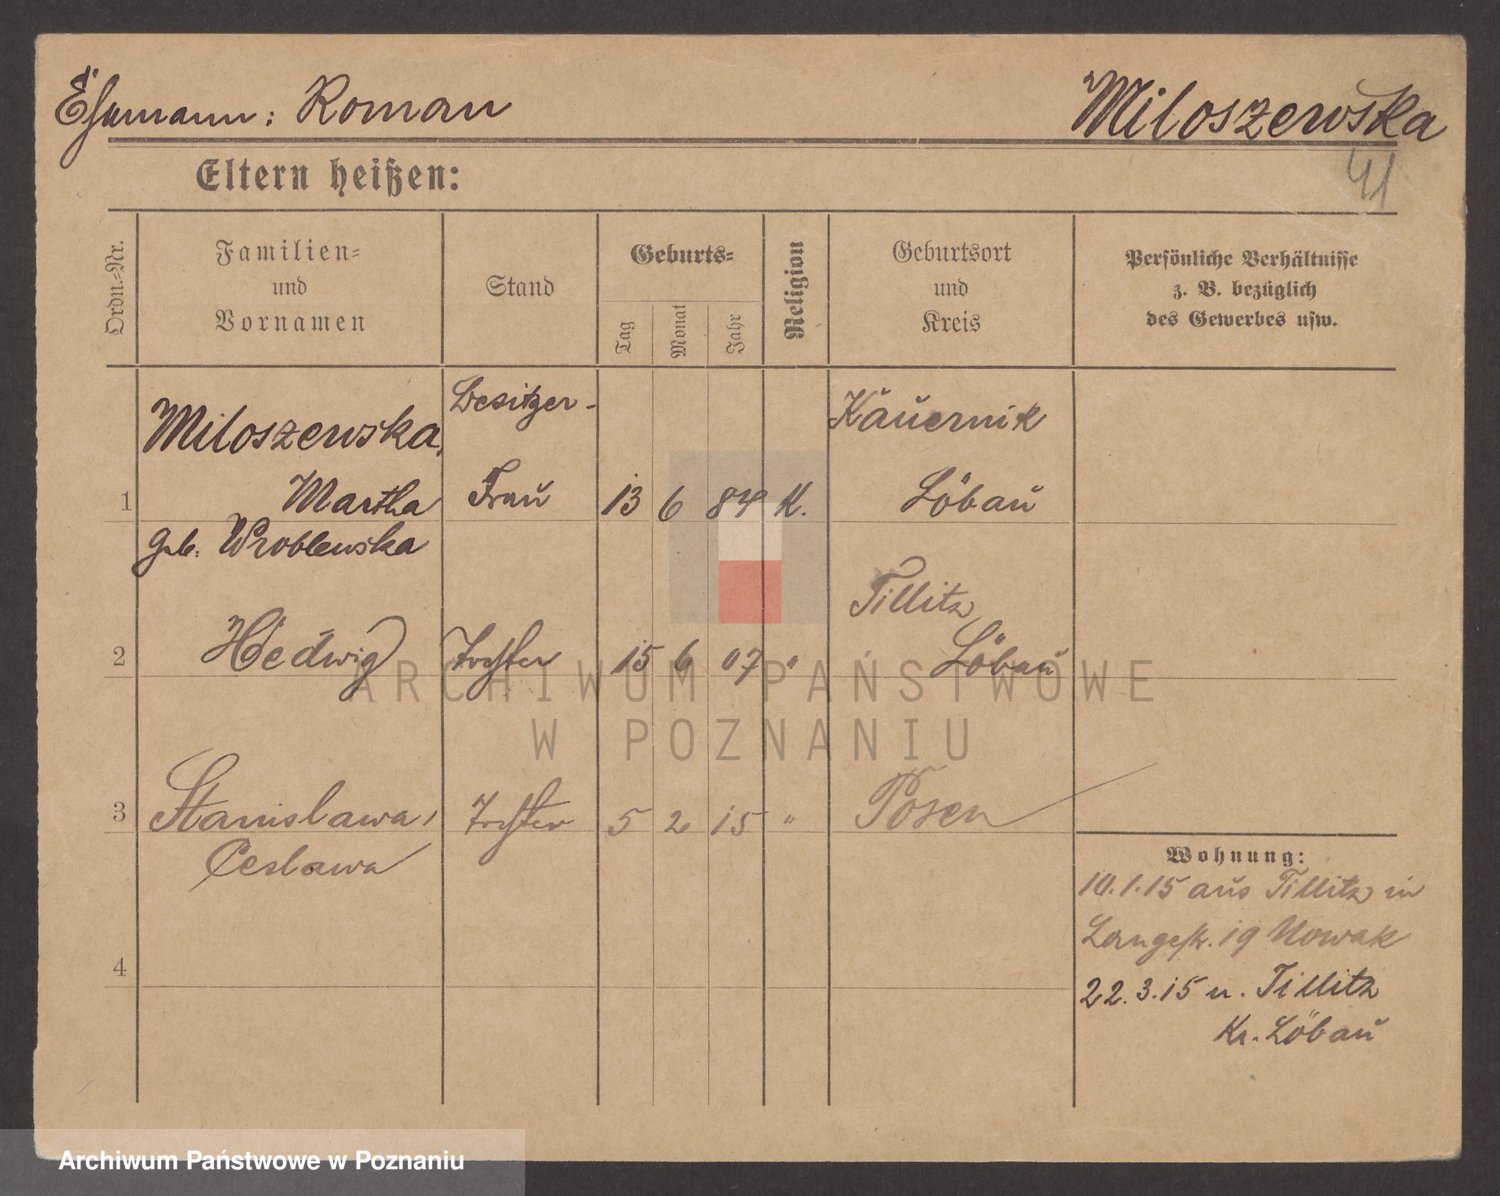 Ehemann: Roman
Miloszewska
41
Eltern heißen:
Ordn.-Nr.
Familien-
und
Vornamen
Stand
Geburts-
Tag
Monat
Jahr
Religion
Geburtsort
und
Kreis
Persönliche Verhältnisse
z. B. bezüglich
des Gewerbes usw.
1
Miloszewska,
Martha
geb. Wroblewska
Besitzer-
Frau
13 6 84 K.
Kauernik
Löbau
2
Hedwig
Tochter
15 6 07 "
Tillitz
Löbau
3
Stanislawa,
Ceslawa
Tochter
5 2 15 "
Posen
4
Wohnung:
10.1.15 aus Tillitz in
Langestr. 19 Nowak
22.3.15 n. Tillitz
Kr. Löbau
ARCHIWUM PAŃSTWOWE
W POZNANIU
Archiwum Państwowe w Poznaniu